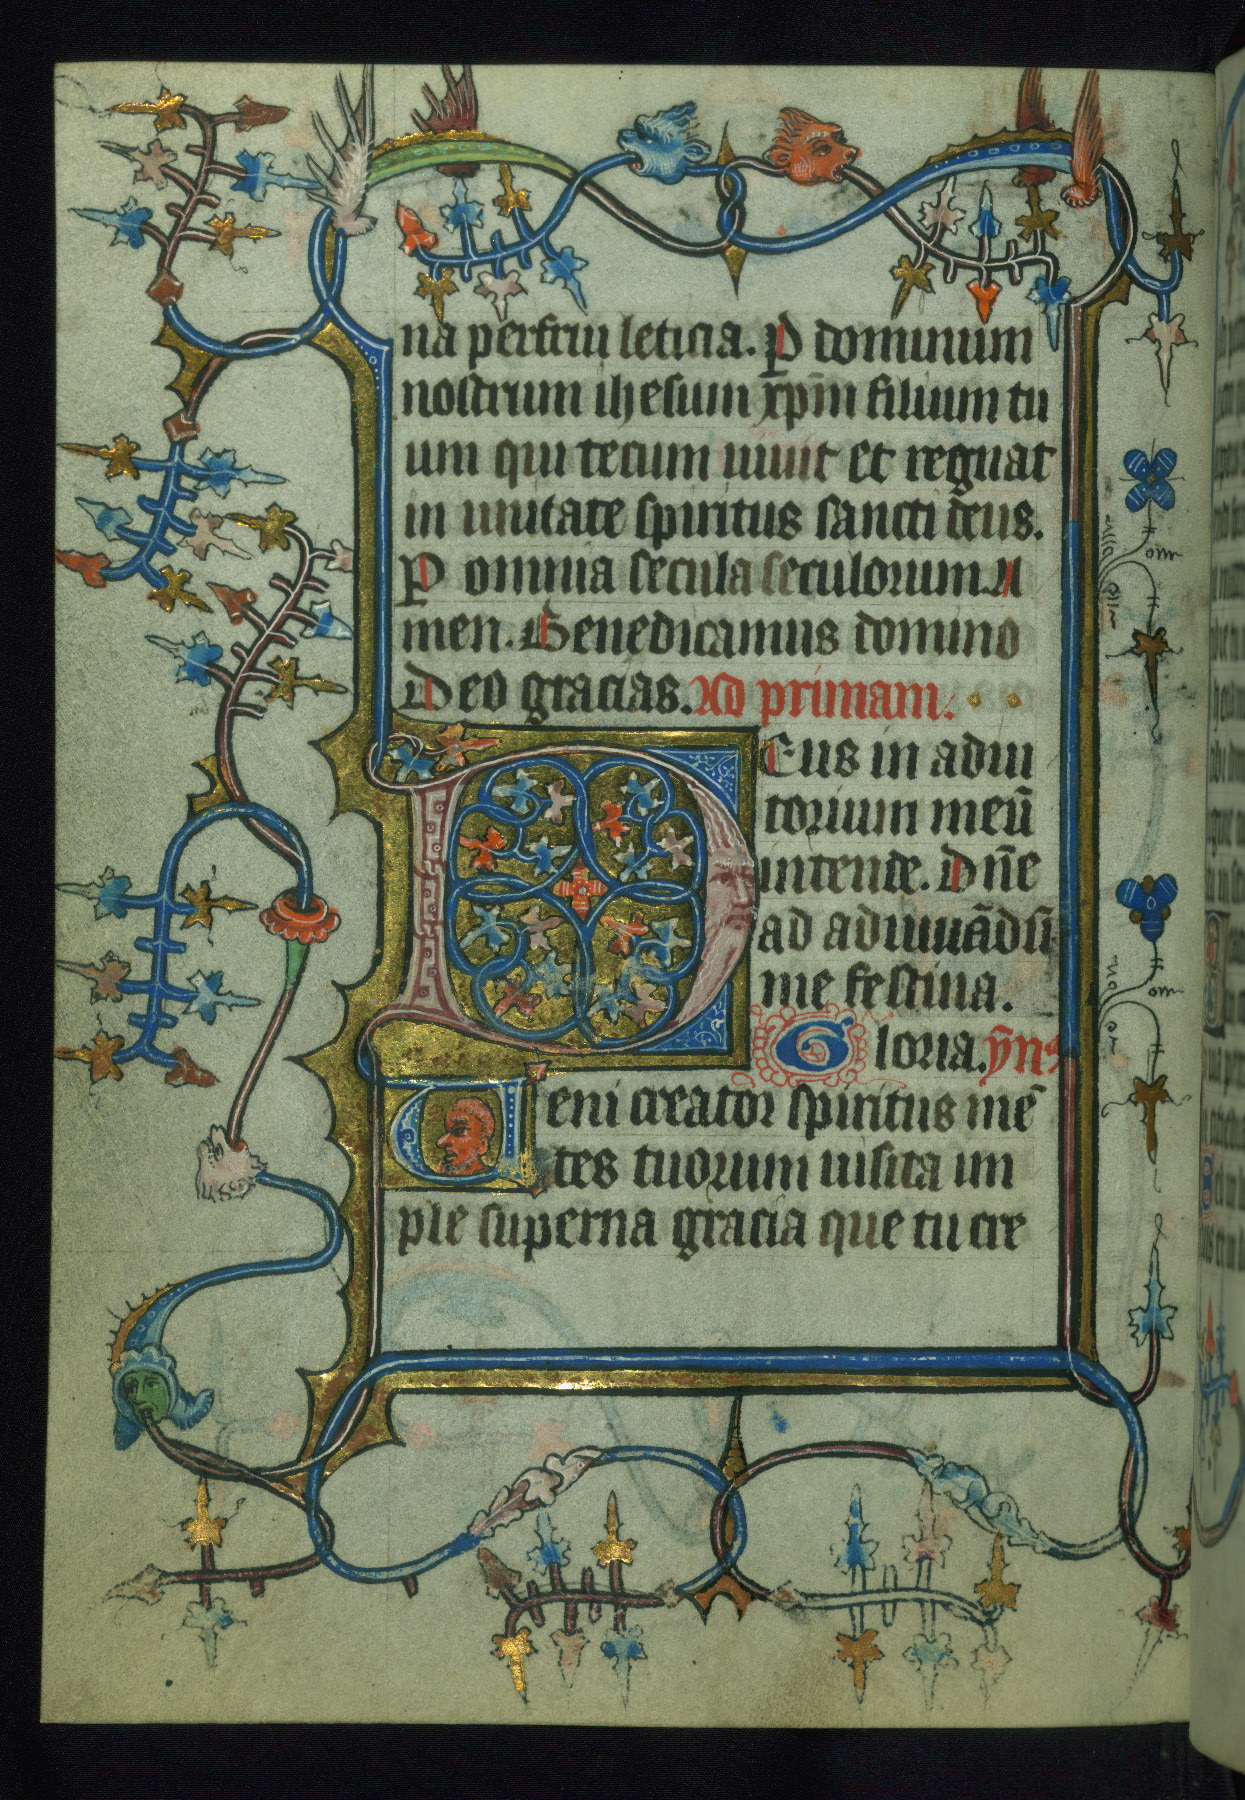 na perfrui leticia. P dominum
nostrum ihesum xp̄m filium tu
um qui tecum uiuit et regnat
in unitate spiritus sancti deus.
P omnia secula seculorum. A
men. Benedicamus domino
Deo gracias. Ad primam.
Deus in adiu
torium meū
intende. Dn̄e
ad adiuuādū
me festina.
Gloria. yn̄s
Ueni creator spiritus mē
tes tuorum uisita im
ple superna gracia que tu cre